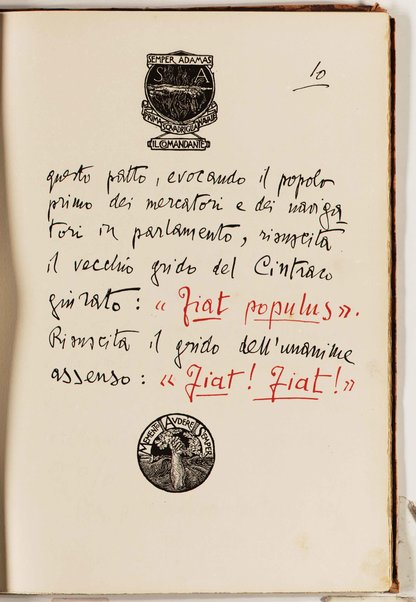 SEMPER ADAMAS
S A
PRIMA SQUADRIGLIA NAVALE
IL COMANDANTE
10
questo patto, evocando il popolo
primo dei mercatori e dei naviga
tori in parlamento, risuscita
il vecchio grido del Cintraco
giurato: « Fiat populus».
Risuscita il grido dell'unanime
assenso: « Fiat! Fiat!»
MEMENTO AUDERE SEMPER